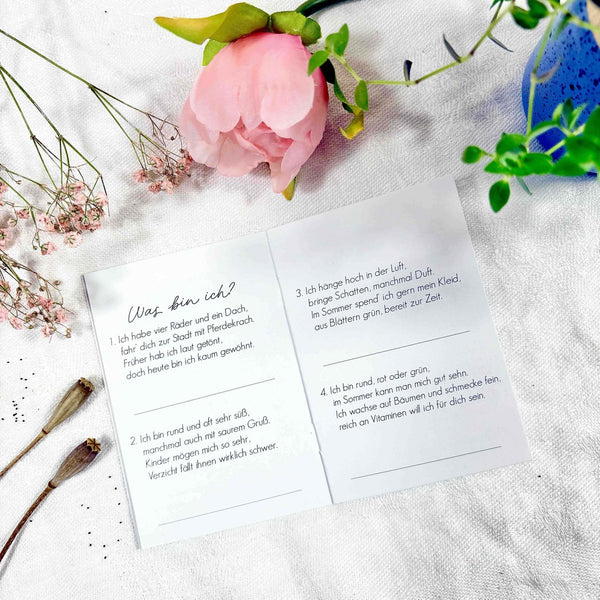 Was bin ich?
1. Ich habe vier Räder und ein Dach,
fahr' dich zur Stadt mit Pferdekrach.
Früher hab ich laut getönt,
doch heute bin ich kaum gewöhnt.
2. Ich bin rund und oft sehr süß,
manchmal auch mit saurem Gruß.
Kinder mögen mich so sehr,
Verzicht fällt ihnen wirklich schwer.
3. Ich hänge hoch in der Luft,
bringe Schatten, manchmal Duft.
Im Sommer spend' ich gern mein Kleid,
aus Blättern grün, bereit zur Zeit.
4. Ich bin rund, rot oder grün,
im Sommer kann man mich gut sehn.
Ich wachse auf Bäumen und schmecke fein,
reich an Vitaminen will ich für dich sein.